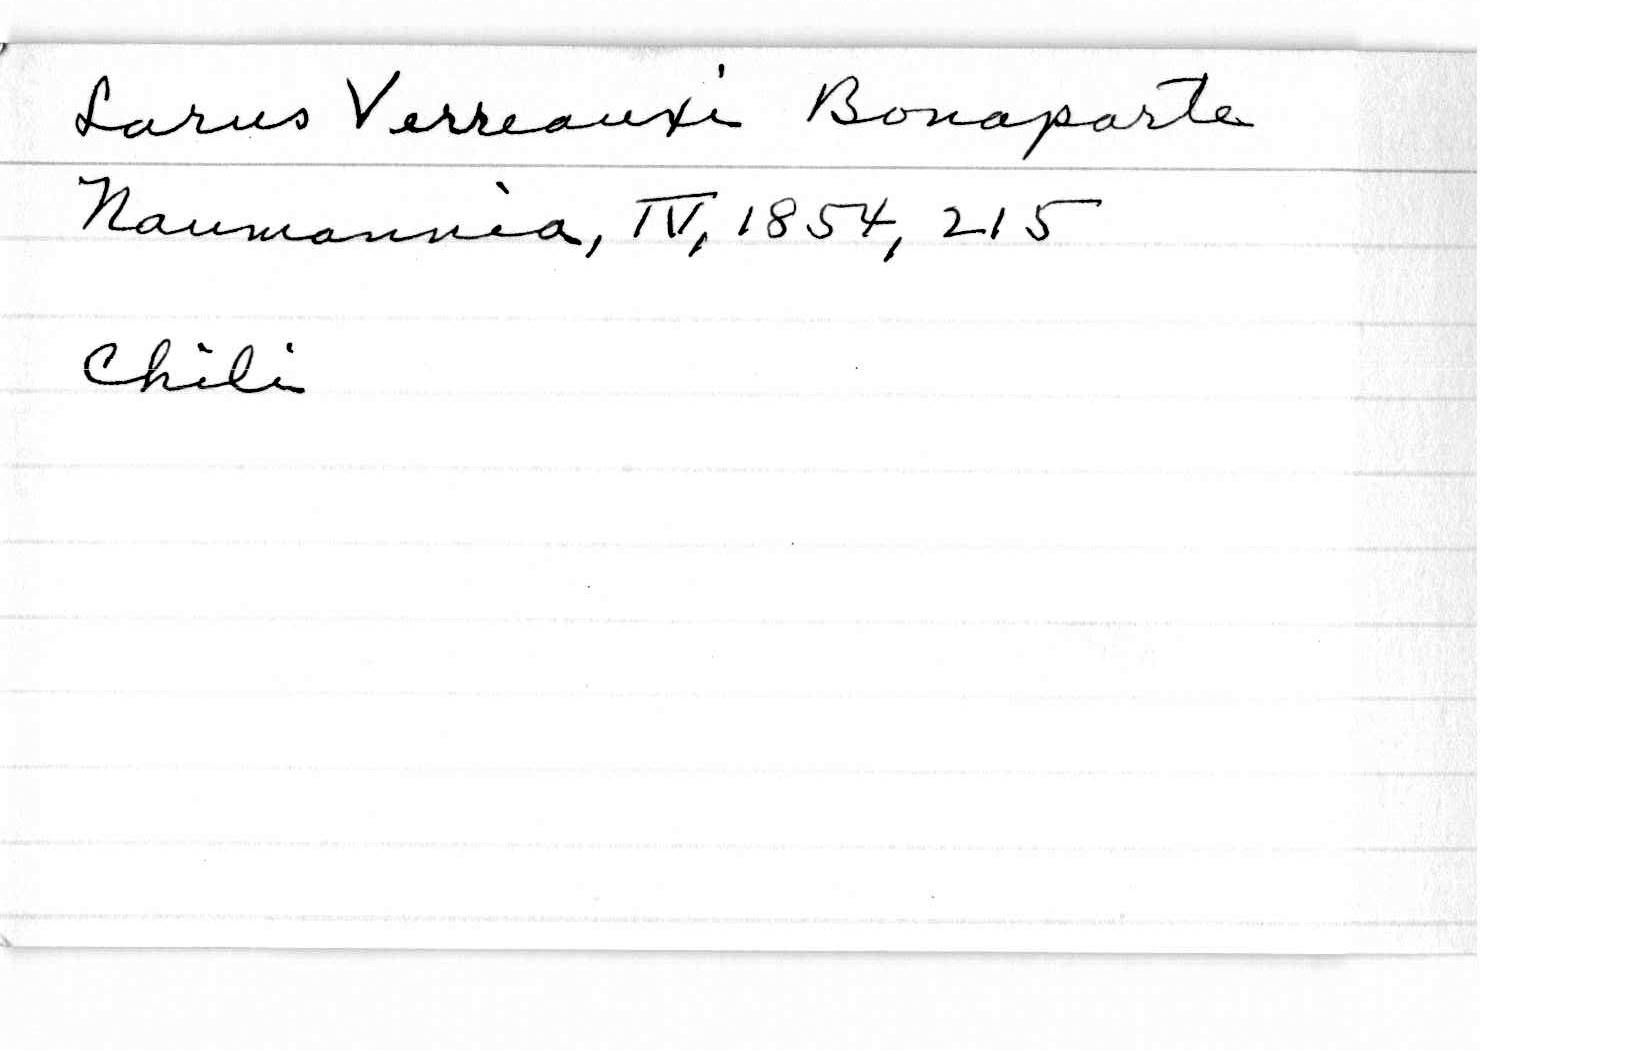 Larus Verreauxi Bonaparte
Naumannia, IV, 1854, 215
Chili